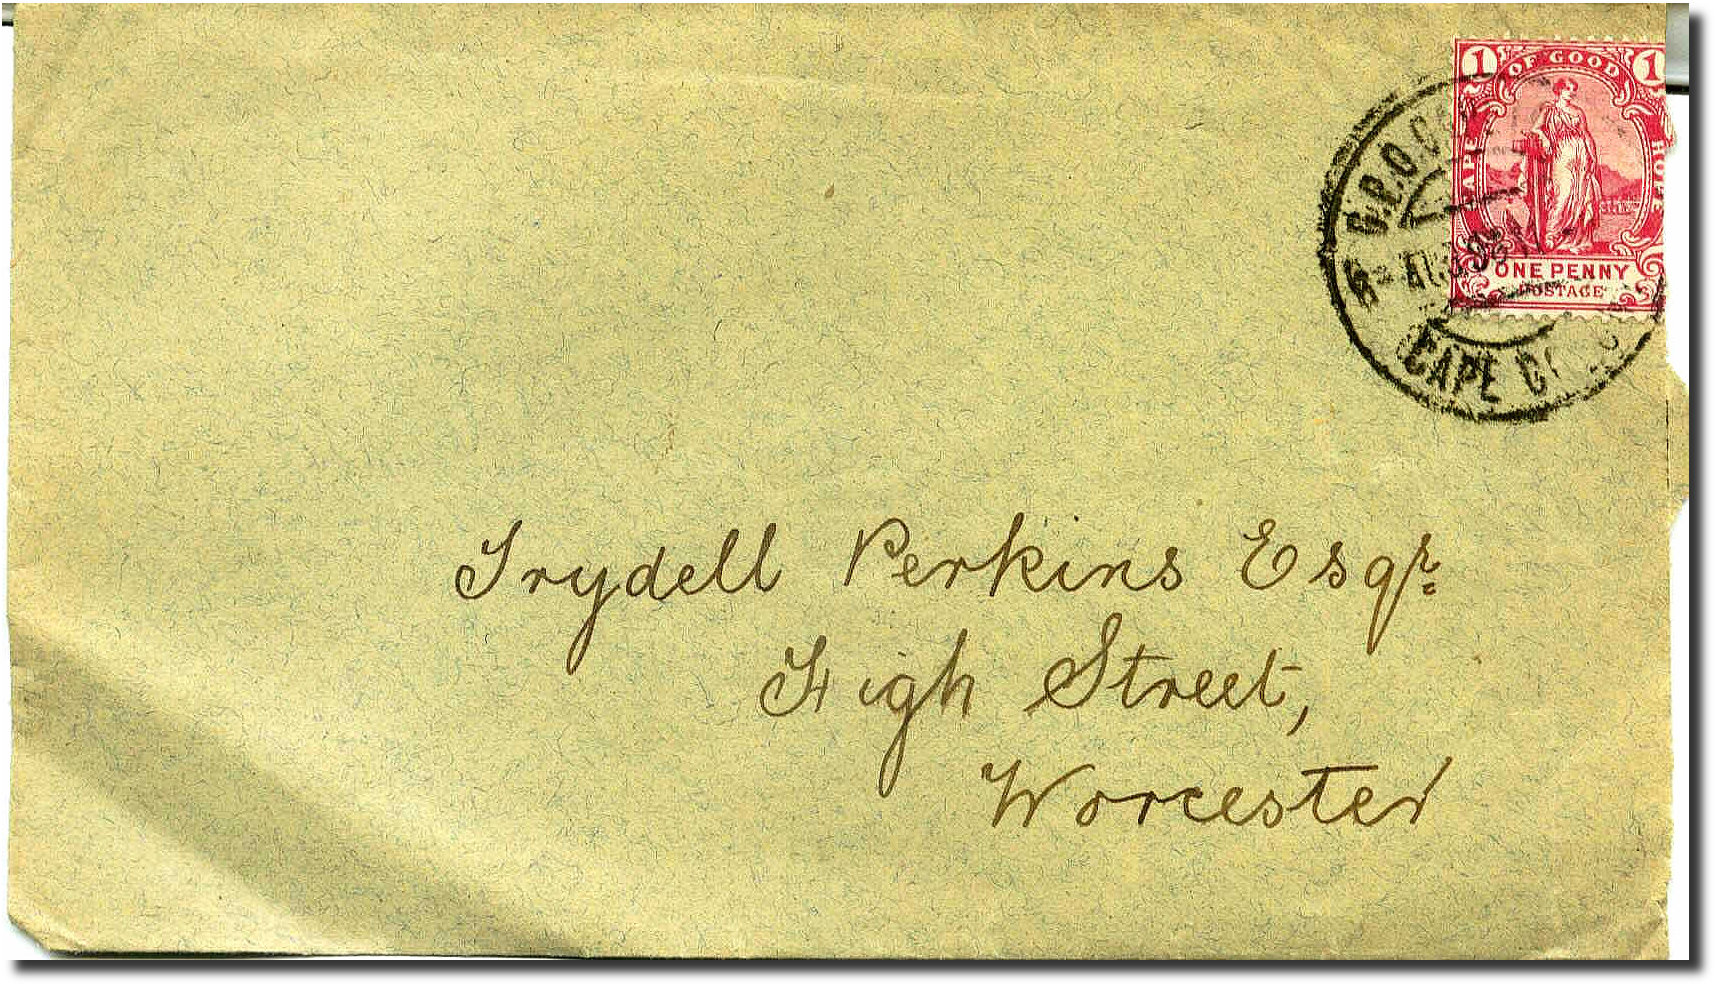 1 OF GOOD 1
CAPE
HOPE
ONE PENNY
POSTAGE
G.P.O.
AU
CAPE
Trydell Perkins Esqr.
High Street,
Worcester